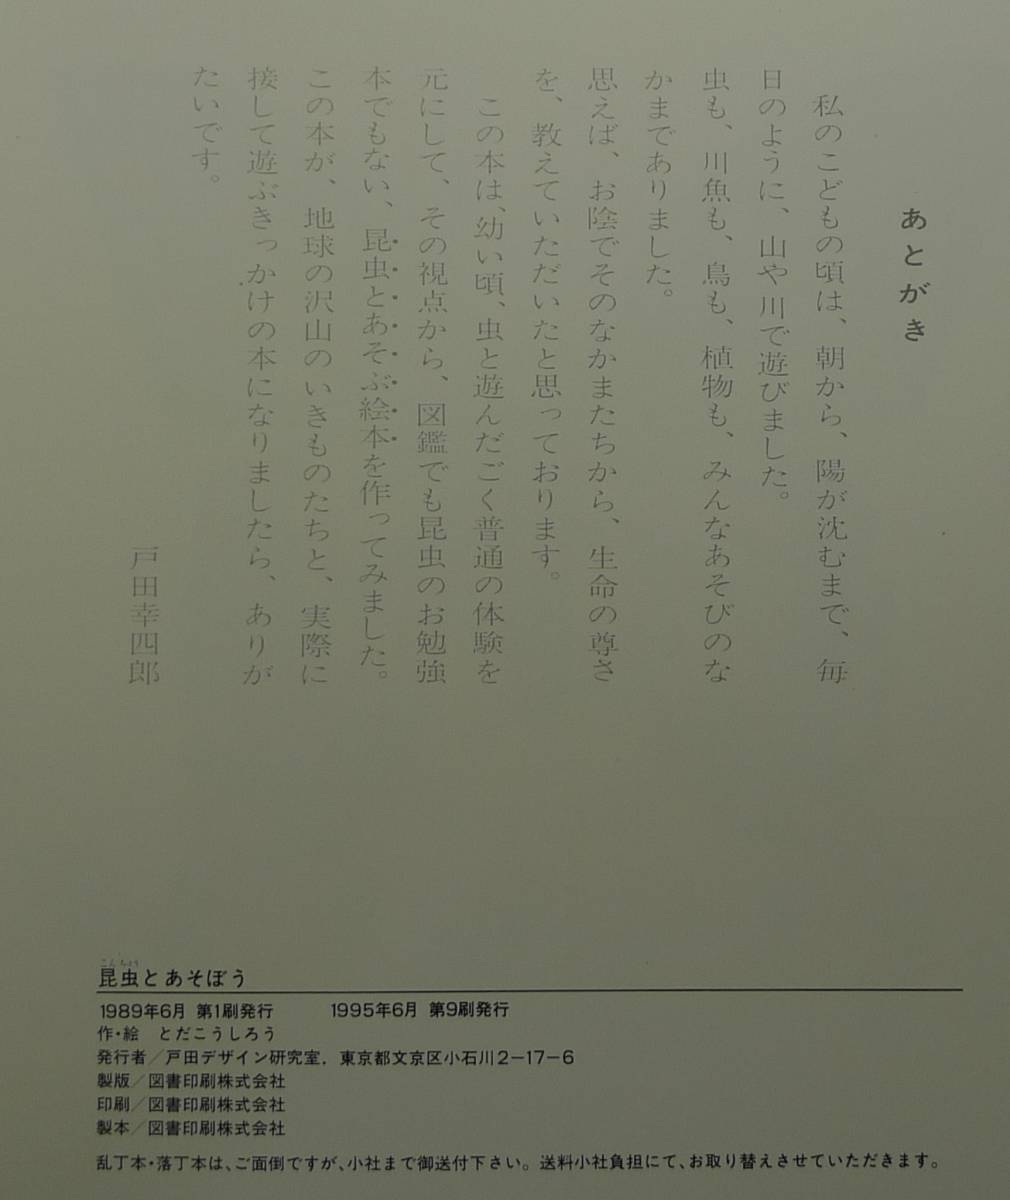 あとがき
私のこどもの頃は、朝から、陽が沈むまで、毎
日のように、山や川で遊びました。
虫も、川魚も、鳥も、植物も、みんなあそびのな
かまでありました。
思えば、お陰でそのなかまたちから、生命の尊さ
を、教えていただいたと思っております。
この本は、幼い頃、虫と遊んだごく普通の体験を
元にして、その視点から、図鑑でも昆虫のお勉強
本でもない、昆虫とあそぶ絵本を作ってみました。
この本が、地球の沢山のいきものたちと、実際に
接して遊ぶきっかけの本になりましたら、ありが
たいです。
戸田幸四郎
こんちゅう
昆虫とあそぼう
1989年6月 第1刷発行 1995年6月 第9刷発行
作・絵 とだこうしろう
発行者/戸田デザイン研究室，東京都文京区小石川2-17-6
製版/図書印刷株式会社
印刷/図書印刷株式会社
製本/図書印刷株式会社
乱丁本・落丁本は、ご面倒ですが、小社まで御送付下さい。送料小社負担にて、お取り替えさせていただきます。